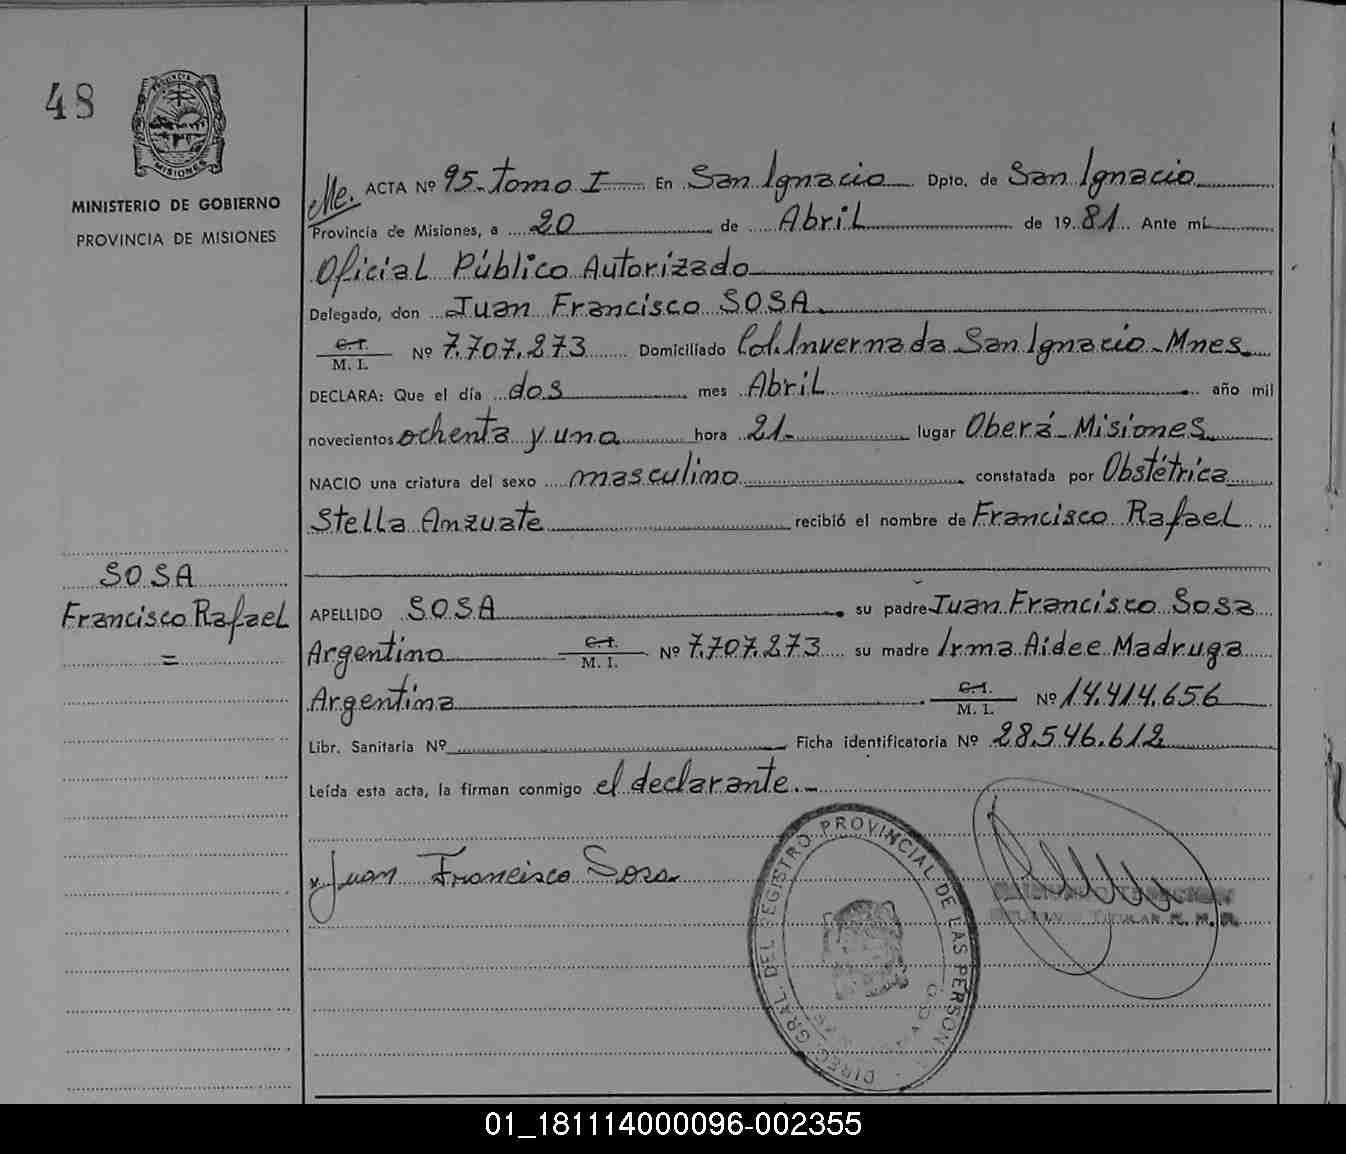 48
PROVINCIA DE
MISIONES
MINISTERIO DE GOBIERNO
PROVINCIA DE MISIONES
SOSA
Francisco Rafael
=
Me. ACTA Nº 95. Tomo I En San Ignacio Dpto. de San Ignacio
Provincia de Misiones, a 20 de Abril de 1981. Ante mí
Oficial Público Autorizado
Delegado, don Juan Francisco SOSA
C. I. M. I. Nº 7.707.273 Domiciliado Col. Invernada San Ignacio - Mnes.
DECLARA: Que el día dos mes Abril año mil
novecientos ochenta y uno hora 21.- lugar Oberá - Misiones
NACIO una criatura del sexo masculino constatada por Obstétrica
Stella Anzuate recibió el nombre de Francisco Rafael
APELLIDO SOSA su padre Juan Francisco Sosa
Argentino C. I. M. I. Nº 7.707.273 su madre Irma Aidee Madruga
Argentina C. I. M. I. Nº 14.414.656
Libr. Sanitaria Nº Ficha identificatoria Nº 28.546.612
Leída esta acta, la firman conmigo el declarante.-
x Juan Francisco Sosa
DIREC. GRAL. DEL REGISTRO PROVINCIAL DE LAS PERSONAS
TITULAR
01_181114000096-002355